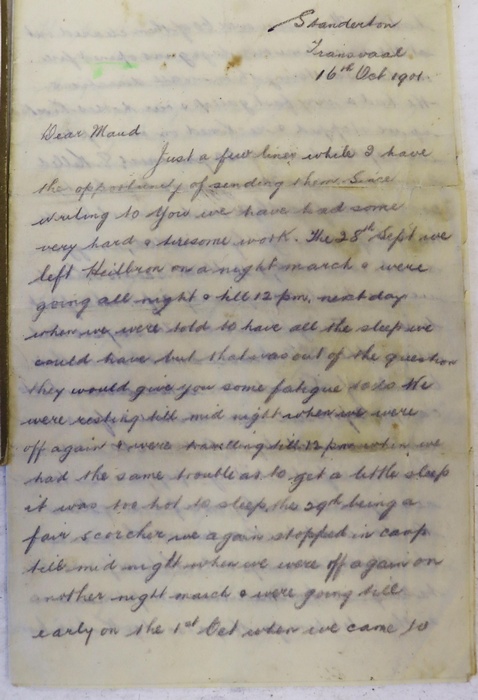 Standerton
Transvaal
16th Oct 1901
Dear Maud
Just a few lines while I have
the opportunity of sending them. Since
writing to you we have had some
very hard & tiresome work. The 28th Sept we
left Heilbron on a night march & were
going all night & till 12 pm, next day
when we were told to have all the sleep we
could have but that was out of the question
they would give you some fatigue to do We
were resting till mid night when we were
off again & were travelling till 12 pm when we
had the same trouble as to get a little sleep
it was too hot to sleep, the 29th being a
fair scorcher we again stopped in camp
till mid night when we were off again on
nother night march & were going till
early on the 1st Oct when we came to